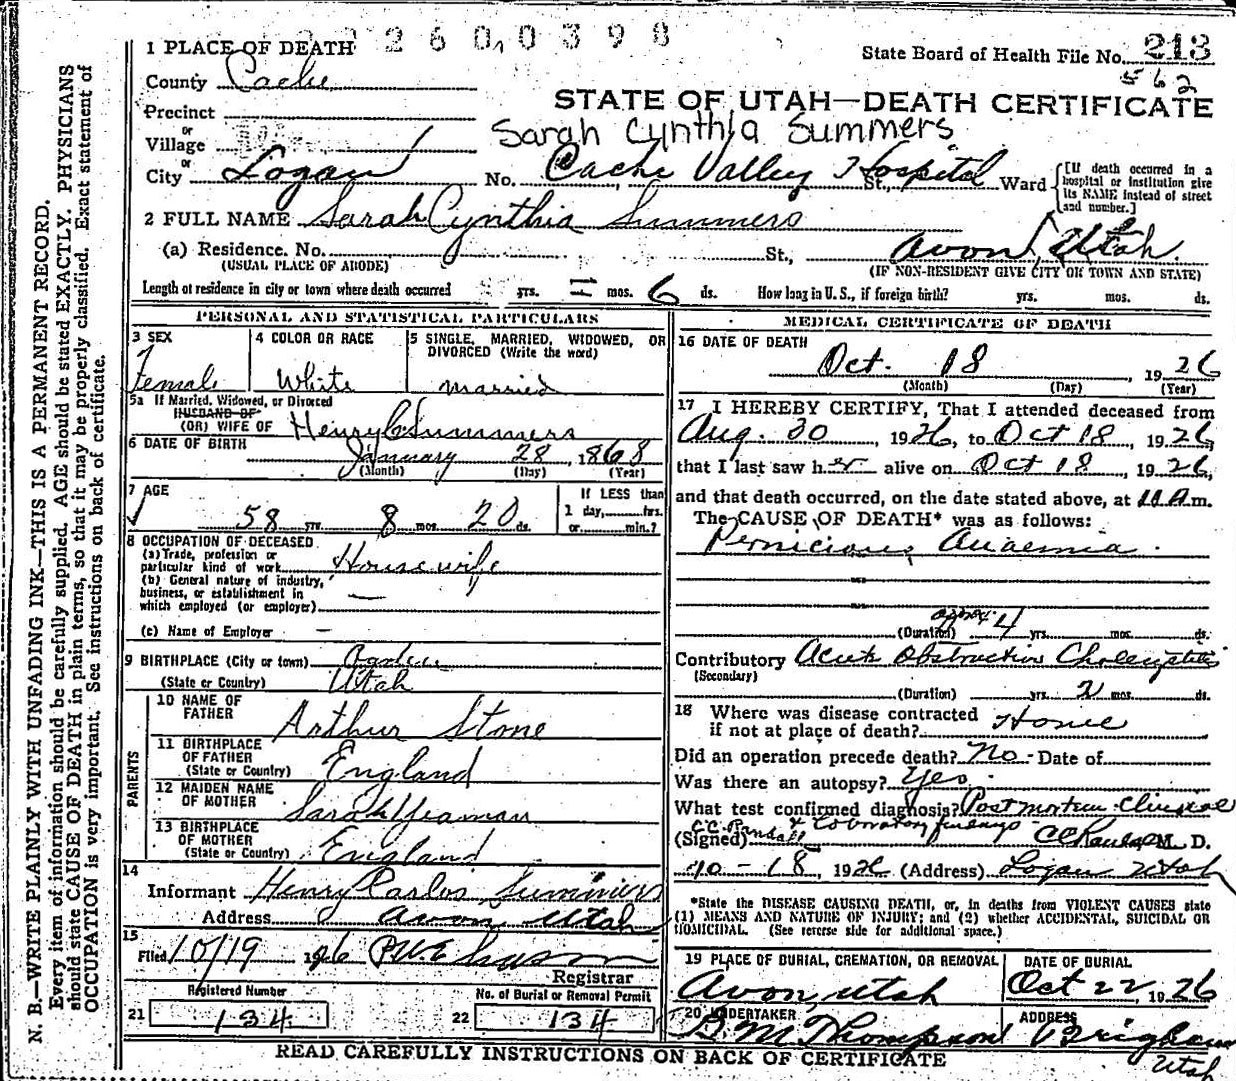 2 6 0 0 3 9 8
1 PLACE OF DEATH
State Board of Health File No. 213
County Cache
562
Precinct
STATE OF UTAH—DEATH CERTIFICATE
or
Sarah Cynthia Summers
Village
or
City Logan No. Cache Valley Hospital St., Ward
[If death occurred in a hospital or institution give its NAME instead of street and number.]
2 FULL NAME Sarah Cynthia Summers
(a) Residence. No. St., Avon, Utah.
(USUAL PLACE OF ABODE) (IF NON-RESIDENT GIVE CITY OR TOWN AND STATE)
Length of residence in city or town where death occurred yrs. mos. 6 ds. How long in U. S., if foreign birth? yrs. mos. ds.
PERSONAL AND STATISTICAL PARTICULARS
3 SEX
Female
4 COLOR OR RACE
White
5 SINGLE, MARRIED, WIDOWED, OR DIVORCED (Write the word)
married
5a If Married, Widowed, or Divorced
HUSBAND OF
(OR) WIFE OF Henry C Summers
6 DATE OF BIRTH January 28, 1868
(Month) (Day) (Year)
7 AGE
58 yrs. 8 mos. 20 ds.
If LESS than
1 day, hrs.
or min.?
8 OCCUPATION OF DECEASED
(a) Trade, profession or
particular kind of work Housewife
(b) General nature of industry,
business, or establishment in
which employed (or employer) —
(c) Name of Employer –
9 BIRTHPLACE (City or town) Ogden
(State or Country) Utah
PARENTS
10 NAME OF FATHER Arthur Stone
11 BIRTHPLACE OF FATHER
(State or Country) England
12 MAIDEN NAME OF MOTHER Sarah Yeaman
13 BIRTHPLACE OF MOTHER
(State or Country) England
14
Informant Henry Carlos Summers
Address Avon Utah
15
Filed 10/19 1926
Registrar
Registered Number
No. of Burial or Removal Permit
21 134 22 134
MEDICAL CERTIFICATE OF DEATH
16 DATE OF DEATH
Oct. 18, 1926
(Month) (Day) (Year)
17 I HEREBY CERTIFY, That I attended deceased from
Aug. 30, 1926, to Oct 18, 1926,
that I last saw her alive on Oct 18, 1926,
and that death occurred, on the date stated above, at 11 A.m.
The CAUSE OF DEATH* was as follows:
Pernicious Anaemia.
(Duration) 4 yrs. mos. ds.
Contributory Acute Obstructive Cholecystitis
(Secondary)
(Duration) yrs. 2 mos. ds.
18 Where was disease contracted
if not at place of death? Home
Did an operation precede death? No - Date of
Was there an autopsy? Yes
What test confirmed diagnosis? Post mortem - Clinical
& Laboratory findings
(Signed) C.C. Randall M. D.
10-18, 1926 (Address) Logan Utah
*State the DISEASE CAUSING DEATH, or, in deaths from VIOLENT CAUSES state
(1) MEANS AND NATURE OF INJURY; and (2) whether ACCIDENTAL, SUICIDAL OR
HOMICIDAL. (See reverse side for additional space.)
19 PLACE OF BURIAL, CREMATION, OR REMOVAL
Avon, Utah
DATE OF BURIAL
Oct 22, 1926
20 UNDERTAKER
D. M. Thompson
ADDRESS
Brigham
Utah
READ CAREFULLY INSTRUCTIONS ON BACK OF CERTIFICATE
N. B.—WRITE PLAINLY WITH UNFADING INK—THIS IS A PERMANENT RECORD.
Every item of information should be carefully supplied. AGE should be stated EXACTLY. PHYSICIANS
should state CAUSE OF DEATH in plain terms, so that it may be properly classified. Exact statement of
OCCUPATION is very important. See instructions on back of certificate.